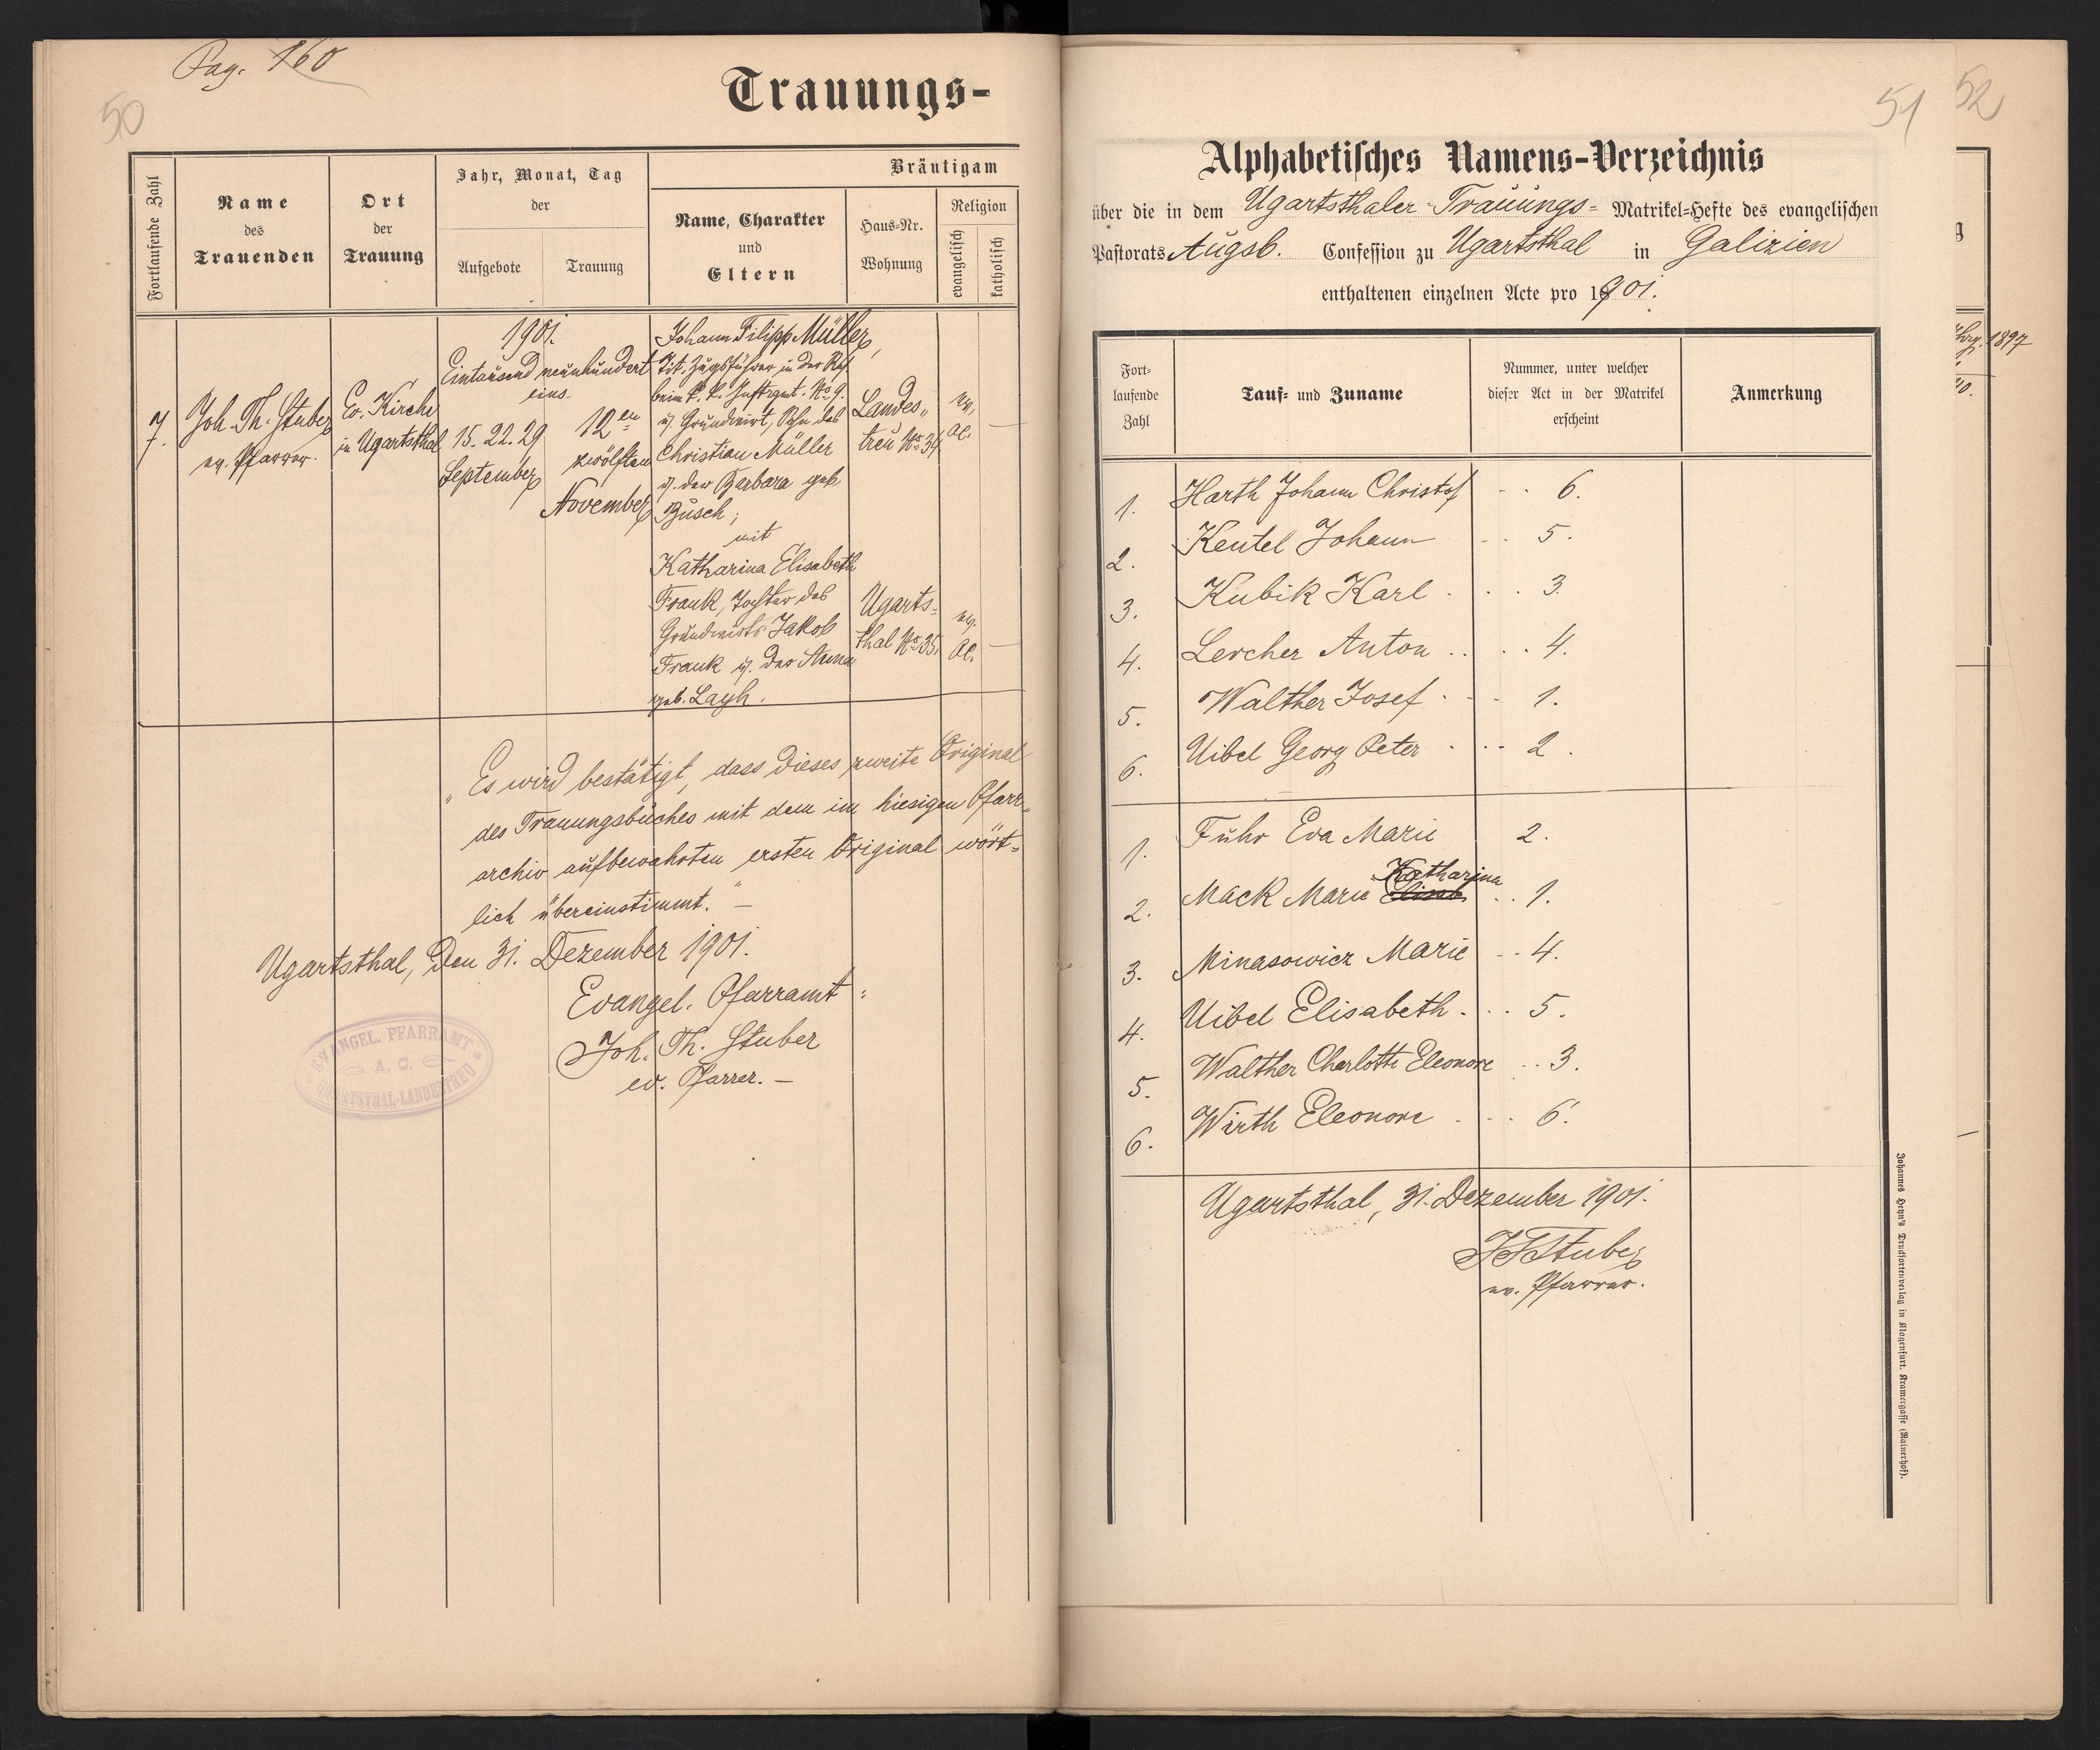 Pag. 160
50
Trauungs-
Fortlaufende Zahl
Name
des
Trauenden
Ort
der
Trauung
Jahr, Monat, Tag
der
Aufgebote
Trauung
Bräutigam
Name, Charakter
und
Eltern
Haus-Nr.
Wohnung
Religion
evangelisch
katholisch
7.
Joh. Th. Stuber
ev. Pfarrer.
Ev. Kirche
in Ugartsthal
1901.
Eintausend neunhundert
eins.
15. 22. 29
September
12en
zwölften
November
Johann Filipp Müller,
Tit. Zugsführer in der Res.
beim k. k. Inftrgmt. No 9.
u. Grundwirt, Sohn des
Christian Müller
u. der Barbara geb.
Busch;
mit
Katharina Elisabeth
Frank, Tochter des
Grundwirts Jakob
Frank u. der Anna
geb. Layh.
Landes„
treu No 34.
ev.
AC. —
Ugarts=
thal No 35.
ev.
AC. —
„Es wird bestätigt, dass dieses zweite Original
des Trauungsbuches mit dem im hiesigen Pfarr„
archiv aufbewahrten ersten Original wört=
lich übereinstimmt.“ —
Ugartsthal, den 31. Dezember 1901.
Evangel. Pfarramt:
Joh. Th. Stuber
ev. Pfarrer. —
EVANGEL. PFARRAMT
A. C.
UGARTSTHAL-LANDESTREU
51
Alphabetisches Namens-Verzeichnis
über die in dem Ugartsthaler Trauungs= Matrikel-Hefte des evangelischen
Pastorats Augsb. Confession zu Ugartsthal in Galizien
enthaltenen einzelnen Acte pro 1901.
Fort-
laufende
Zahl
Tauf- und Zuname
Nummer, unter welcher
dieser Act in der Matrikel
erscheint
Anmerkung
1. Harth Johann Christof - . 6.
2. Keutel Johann - . 5.
3. Kubik Karl . . . 3.
4. Lercher Anton . . . . 4.
5. Walther Josef . - 1.
6. Uibel Georg Peter . - . 2.
1. Fuhr Eva Marie 2.
Katharina
2. Mack Marie Elisab. . . 1.
3. Minasowicz Marie - . 4.
4. Uibel Elisabeth . . . 5.
5. Walther Charlotte Eleonore . . 3.
6. Wirth Eleonore . - . 6.
Ugartsthal, 31. Dezember 1901.
JThStuber
ev. Pfarrer.
Johannes Heyn's Drucksortenverlag in Klagenfurt. Kramergasse (Rainerhof).
52
g
1897